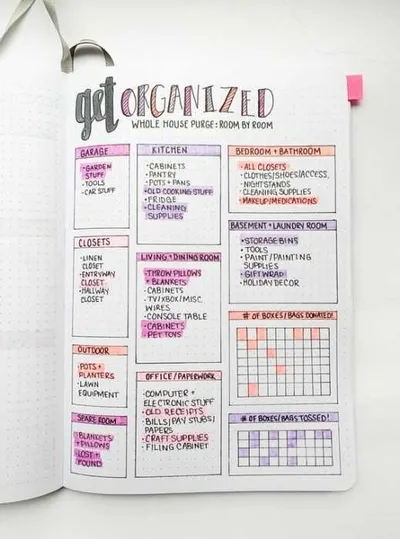 get ORGANIZED
WHOLE HOUSE PURGE: ROOM BY ROOM
GARAGE
•GARDEN
STUFF
•TOOLS
•CAR STUFF
CLOSETS
•LINEN
CLOSET
•ENTRYWAY
CLOSET
•HALLWAY
CLOSET
OUTDOOR
•POTS +
PLANTERS
•LAWN
EQUIPMENT
SPARE ROOM
•BLANKETS
+ PILLOWS
•LOST +
FOUND
KITCHEN
•CABINETS
•PANTRY
•POTS + PANS
•OLD COOKING STUFF
•FRIDGE
•CLEANING
SUPPLIES
LIVING + DINING ROOM
•THROW PILLOWS
+ BLANKETS
•CABINETS
•TV/XBOX/MISC.
WIRES
•CONSOLE TABLE
•CABINETS
•PET TOYS
OFFICE/PAPERWORK
•COMPUTER +
ELECTRONIC STUFF
•OLD RECEIPTS
•BILLS/PAY STUBS/
PAPERS
•CRAFT SUPPLIES
•FILING CABINET
BEDROOM + BATHROOM
•ALL CLOSETS
•CLOTHES/SHOES/ACCESS.
•NIGHTSTANDS
•CLEANING SUPPLIES
•MAKEUP/MEDICATIONS
BASEMENT + LAUNDRY ROOM
•STORAGE BINS
•TOOLS
•PAINT/PAINTING
SUPPLIES
•GIFTWRAP
•HOLIDAY DECOR
# OF BOXES/BAGS DONATED!
# OF BOXES/BAGS TOSSED!